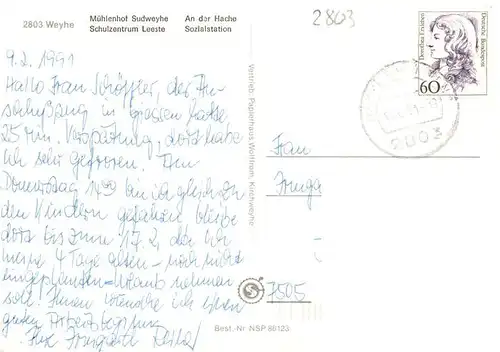 2803 Weyhe
Mühlenhof Sudweyhe An der Hache
Schulzentrum Leeste Sozialstation
2803
Dorothea Erxleben
Deutsche Bundespost
60
2803
9.2.1991
Hallo Frau Schöffler, der An-
schlußzug in Giessen hatte
25 Min. Verspätung, dort habe
ich sehr gefroren. Am
Donnerstag bin ich gleich zu
den Kindern gefahren bleibe
dort bis zum 17.2, da ich
meine 4 Tage alten - noch nicht
eingeplanten - Urlaub nehmen
soll. Ihnen wünsche ich einen
guten Arbeitsbeginn
Ihre
Frau
7505
Vertrieb: Papierhaus Wolfram, Kirchweyhe
Best.-Nr. NSP 80123